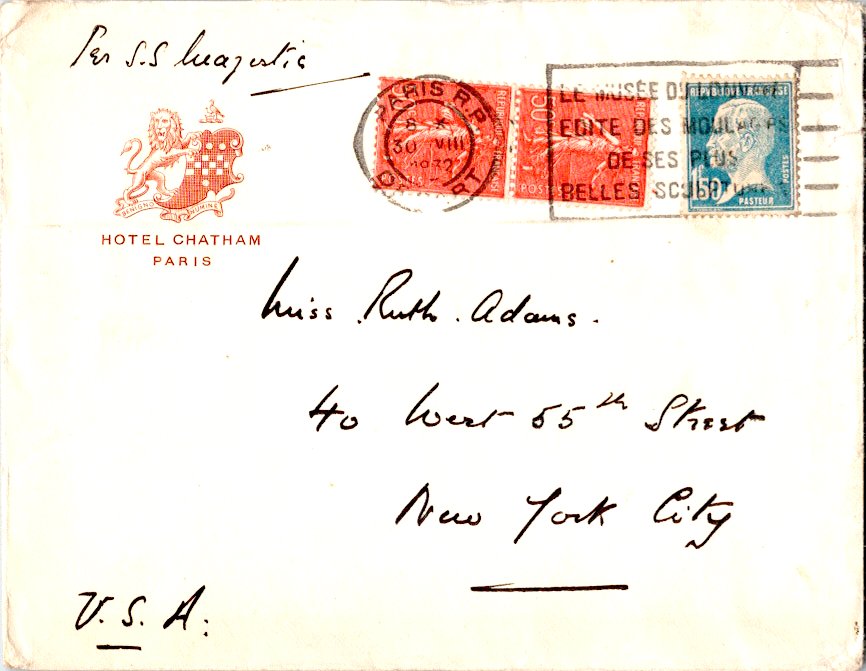 Per S.S Majestic
PARIS R.P.
8 X
30 VIII
1932
DÉPART
LE MUSÉE DU LOUVRE
EDITE DES MOULAGES
DE SES PLUS
BELLES SCULPTURES
REPUBLIQUE FRANÇAISE
50
POSTES
REPUBLIQUE FRANÇAISE
1F50
POSTES
PASTEUR
BENIGNO NUMINE
HOTEL CHATHAM
PARIS
Miss Ruth Adams.
40 West 55th Street
New York City
U.S.A.